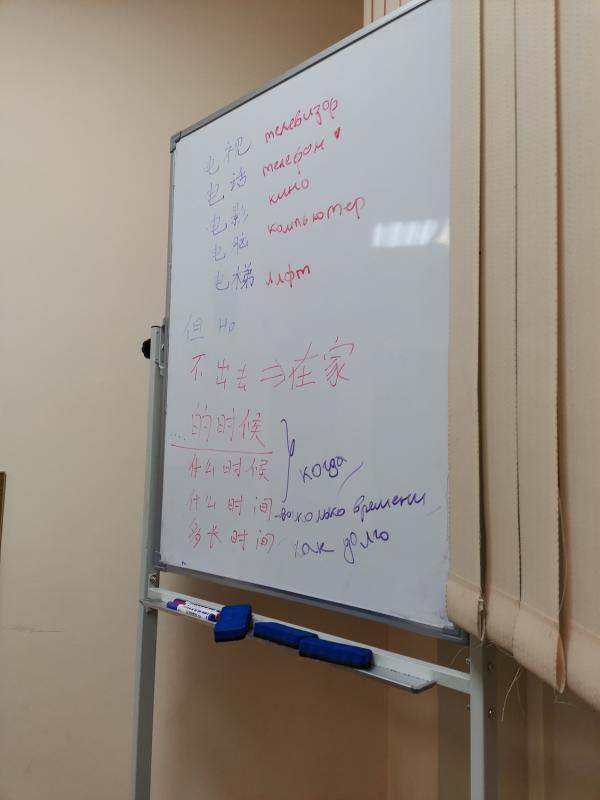 电视 телевизор
电话 телефон
电影 кино
电脑 компьютер
电梯 лифт
但 но
不出去 ⇒ 在家
....的时候
什么时候 когда
什么时间 во сколько времени
多长时间 как долго